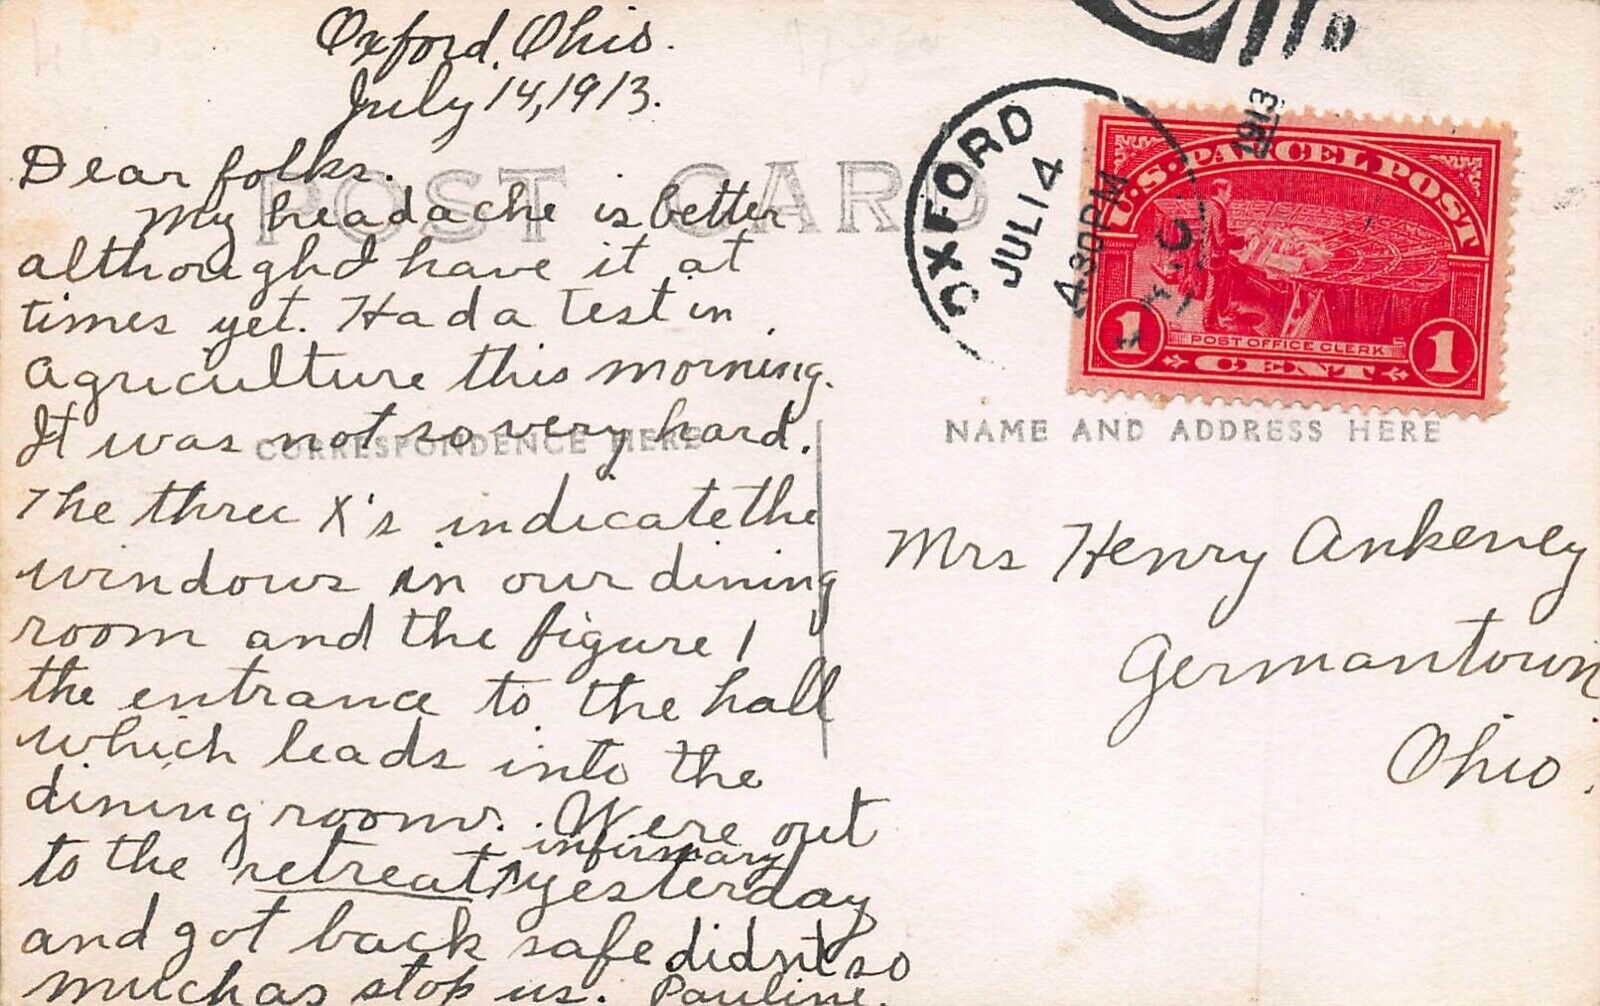 Oxford, Ohio.
July 14, 1913.
Dear folks.
My headache is better
although I have it at
times yet. Had a test in
Agriculture this morning.
It was not so very hard.
The three X's indicate the
windows in our dining
room and the figure 1
the entrance to the hall
which leads into the
dining room. Were out
infirmary
to the retreat ^ yesterday
and got back safe didnt so
much as stop us. Pauline.
POST CARD
CORRESPONDENCE HERE
OXFORD
JUL 14
430PM
1913
U.S. PARCEL POST
POST OFFICE CLERK
1 CENT 1
NAME AND ADDRESS HERE
Mrs Henry Ankeney
Germantown
Ohio.